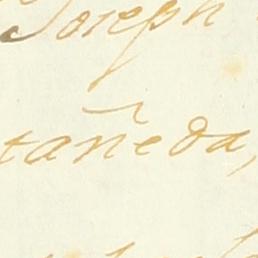 Joseph
tañeda,